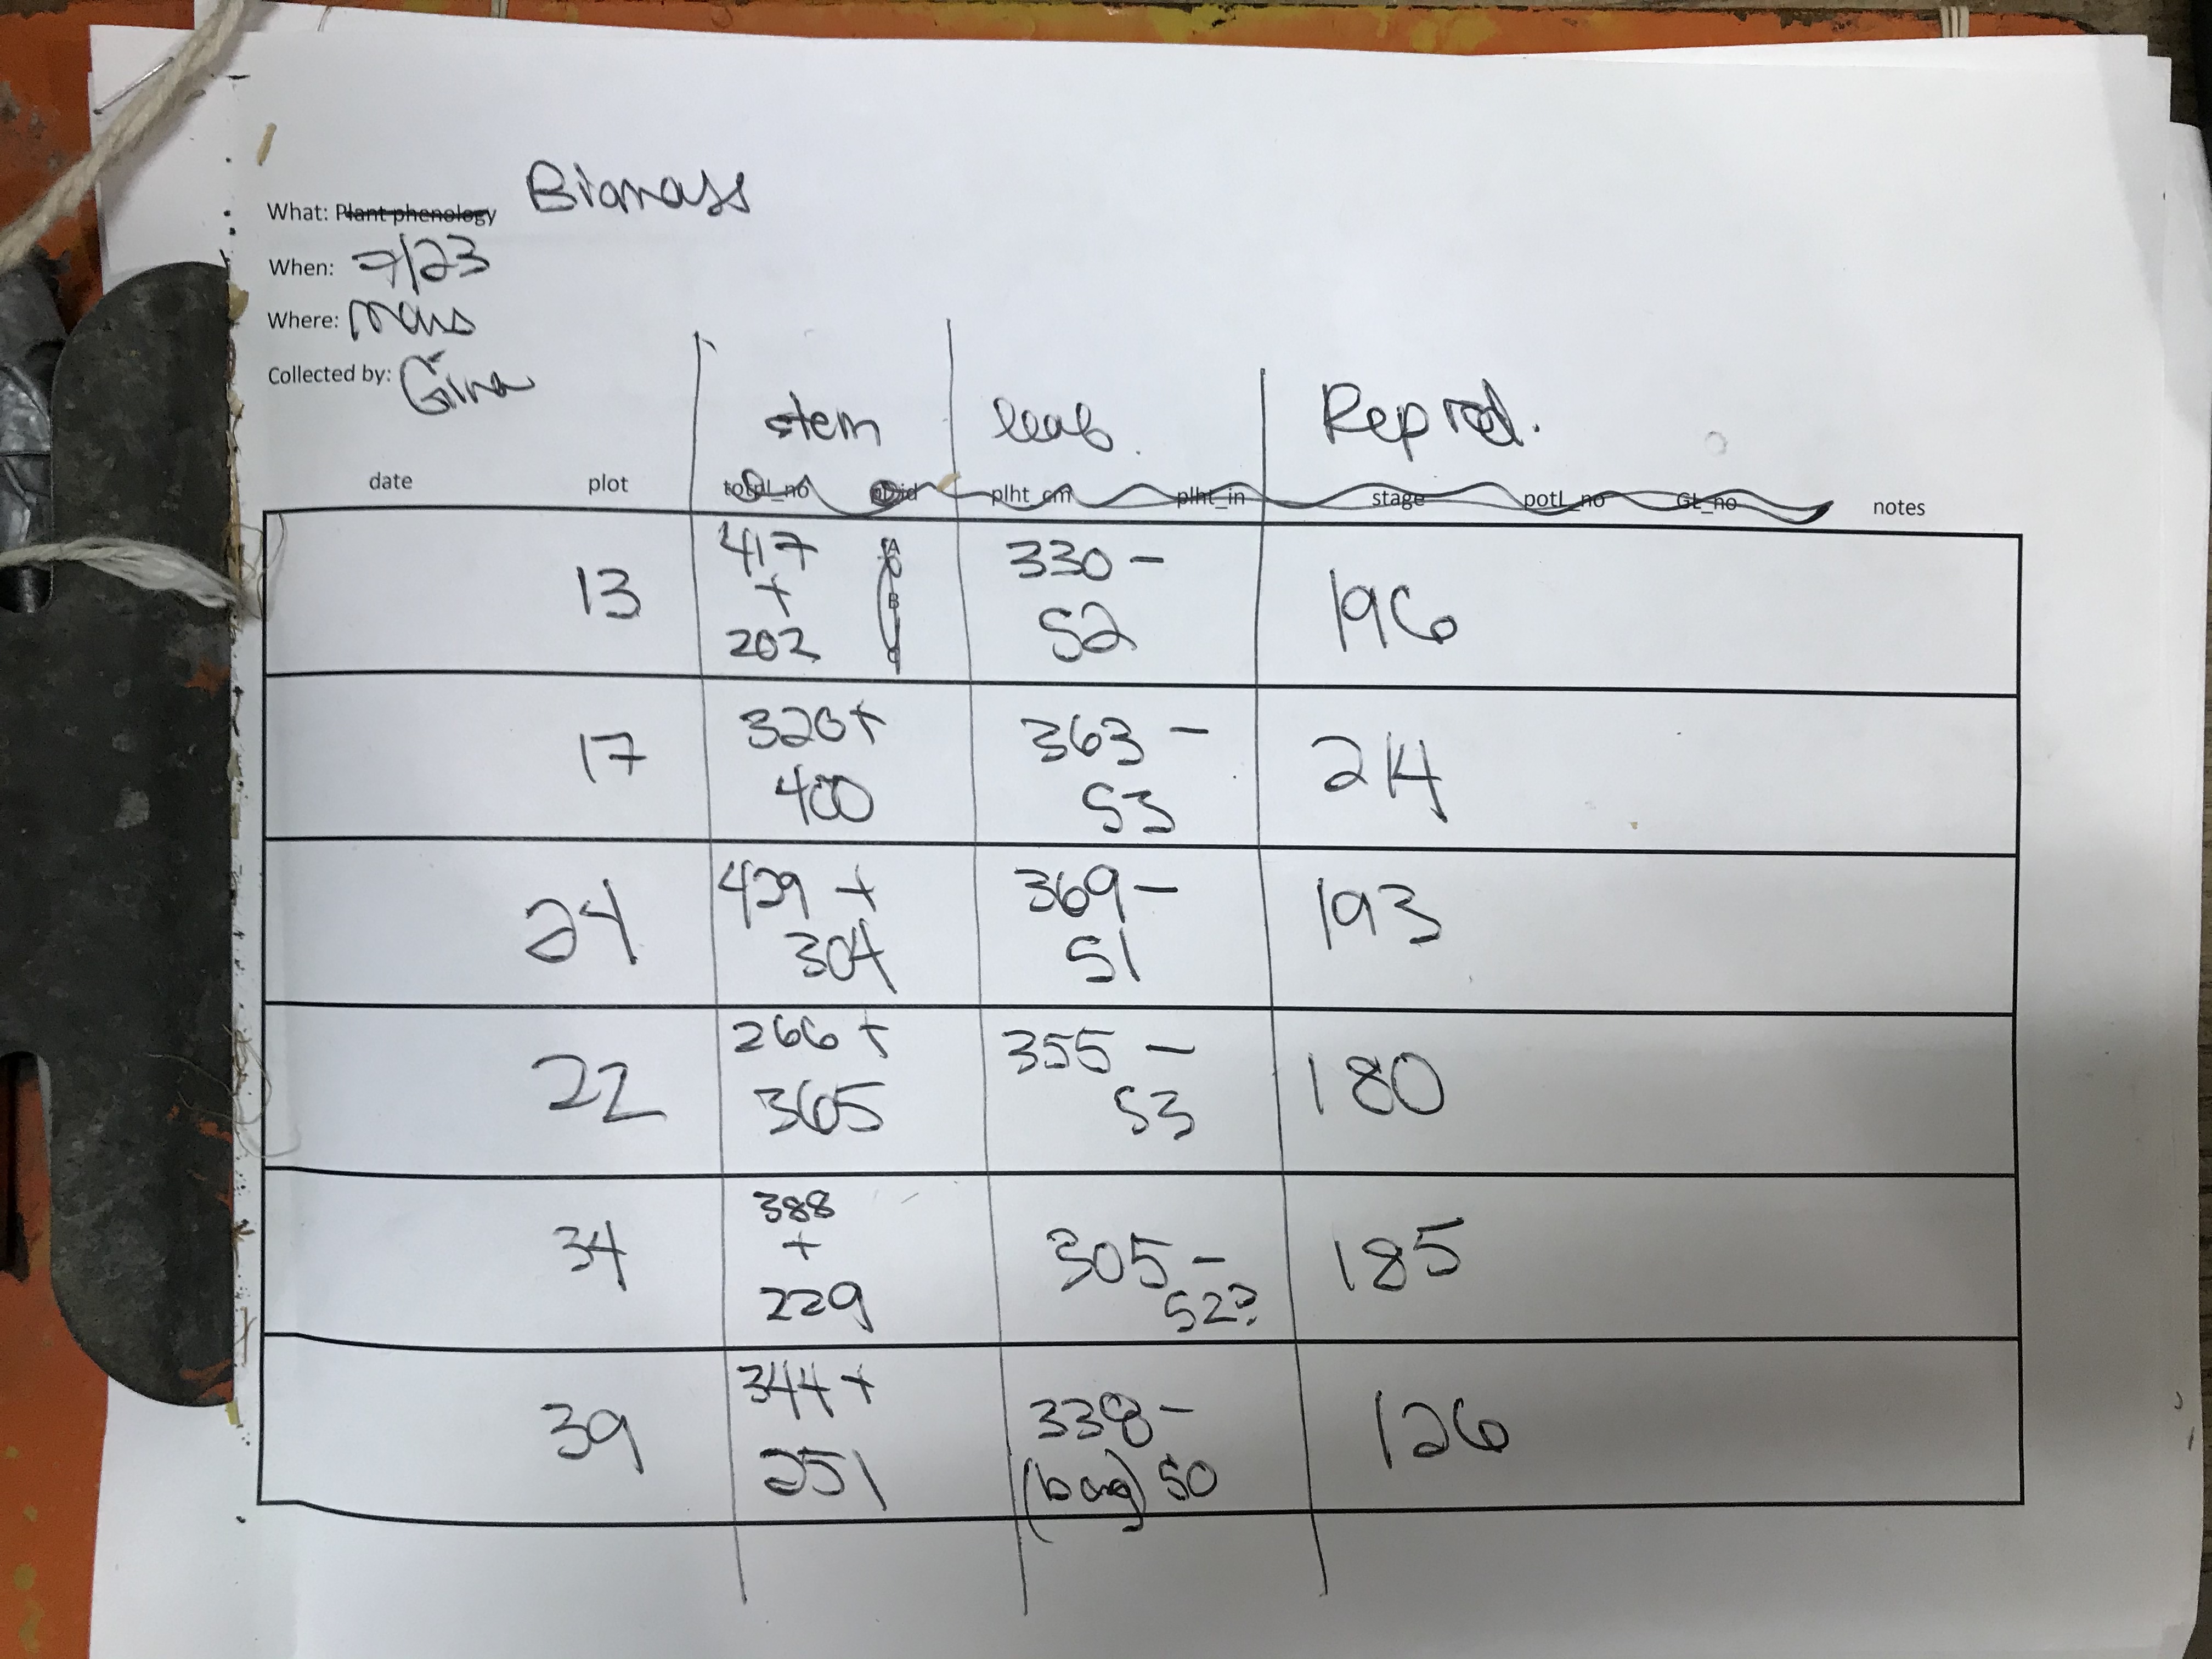 What: Plant phenology Biomass
When: 7/23
Where: Mars
Collected by: Gina
stem leaf Reprod.
date plot totpl_no plht_cm plht_in stage potL_no GL_no notes
13 417 + 202 A B C 330 - 52 196
17 320 + 400 363 - 53 214
24 429 + 304 369 - 51 193
22 266 + 365 355 - 53 180
34 388 + 229 305 - 52? 185
39 344 + 251 338 - (bag) 50 126